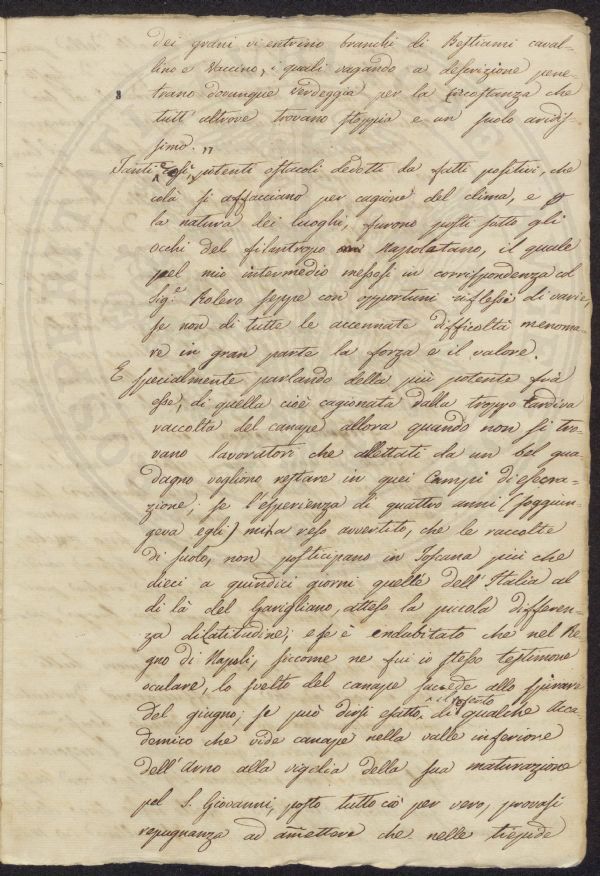 dei grani vi entrino branchi di Bestiami caval-
lino e Vaccino, i quali vagando a discrizione pene-
trano dovunque verdeggia per la circostanza che
tutt'altrove trovano stoppia e un suolo aridis-
simo. "
Tanti e potenti ostacoli dedotti da fatti positivi, che
colà si affacciano per cagione del clima, e p
la natura dei luoghi, furono posti sotto gli
occhi del filantropo Napoletano, il quale
pel mio intermedio messosi in corrispondenza col
Sig.e Rolevo seppe con opportuni riflessi di varie,
se non di tutte le accennate difficoltà menoma-
re in gran parte la forza e il valore.
E specialmente parlando della più potente frà
esse, di quella cioè cagionata dalla troppo tardiva
raccolta del canape allora quando non si tro-
vano lavoratori che allettati da un bel gua-
dagno vogliono restare in quei Campi di esecra-
zione; se l'esperienza di quattro anni (soggiun-
geva egli) mi ha reso avvertito, che le raccolte
di suolo, non posticipano in Toscana più che
dieci a quindici giorni quelle dell'Italia al
di là del Garigliano, atteso la piccola differen-
za di latitudine; e se è indubitato che nel Re-
gno di Napoli, siccome ne fui io stesso testimone
oculare, lo svelto del canape succede allo spirare
del giugno; se può dirsi esatto il rapporto di qualche Acca-
demico che vide canape nella valle inferiore
dell'Arno alla vigilia della sua maturazione
pel S. Giovanni, posto tutto ciò per vero, provasi
repugnanza ad amettere che nelle tiepide